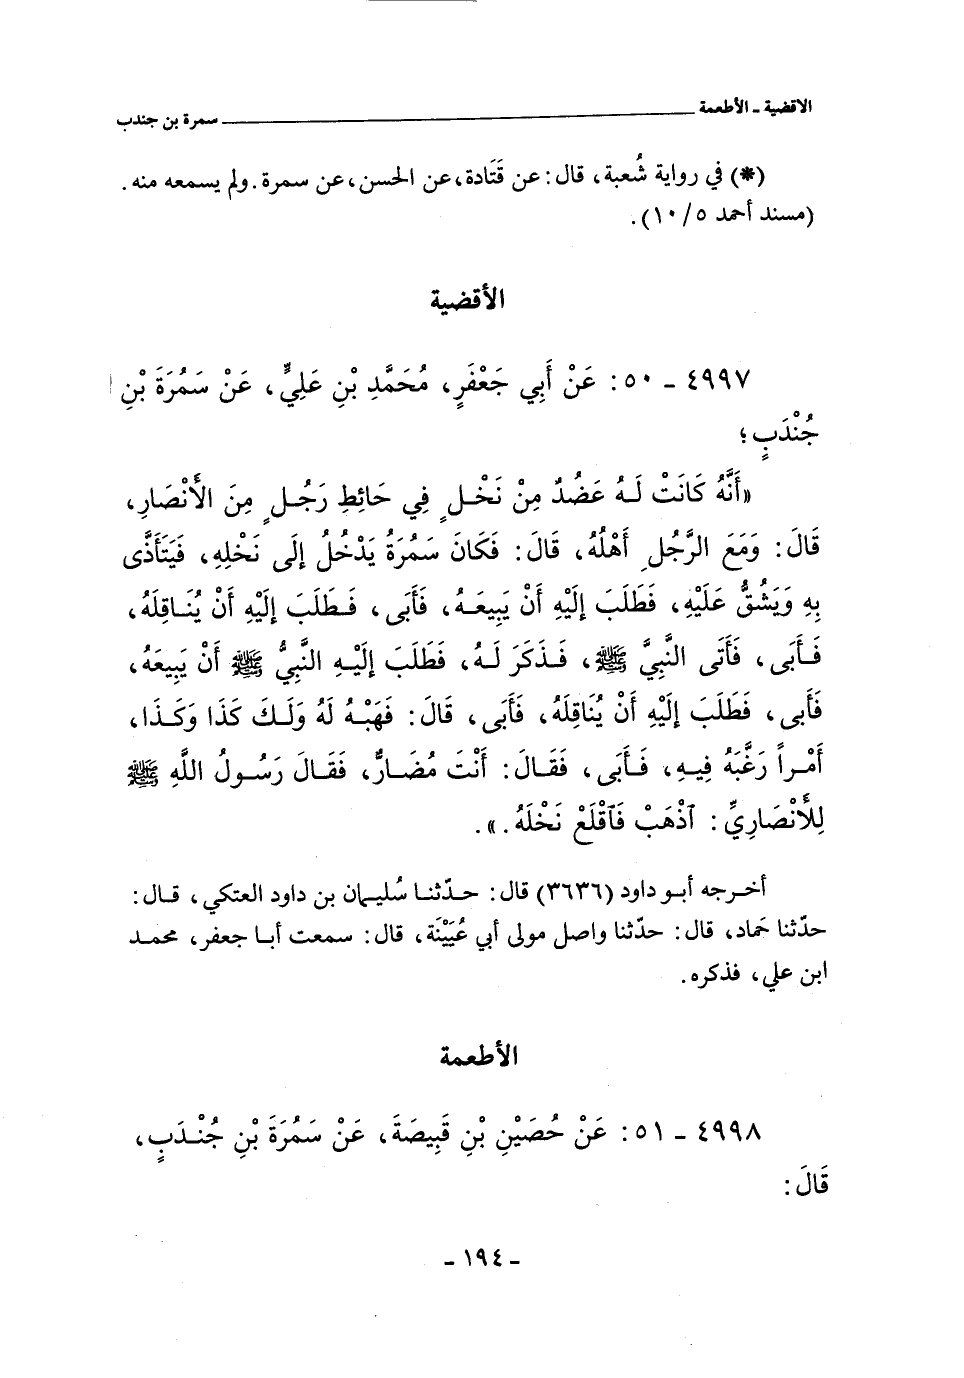 الاقضية ـ الأطعمة ـــــــــــــــــــــــــــــــــ سمرة بن جندب
(*) في رواية شُعبة، قال: عن قَتَادة، عن الحسن، عن سمرة. ولم يسمعه منه.
(مسند أحمد ٥/ ١٠).
الأقضية
٤٩٩٧ ـ ٥٠: عَنْ أَبِي جَعْفَرٍ، مُحَمَّدِ بْنِ عَلِيٍّ، عَنْ سَمُرَةَ بْنِ
جُنْدَبٍ؛
«أَنَّهُ كَانَتْ لَهُ عَضُدٌ مِنْ نَخْلٍ فِي حَائِطِ رَجُلٍ مِنَ الأَنْصَارِ،
قَالَ: وَمَعَ الرَّجُلِ أَهْلُهُ، قَالَ: فَكَانَ سَمُرَةُ يَدْخُلُ إِلَى نَخْلِهِ، فَيَتَأَذَّى
بِهِ وَيَشُقُّ عَلَيْهِ، فَطَلَبَ إِلَيْهِ أَنْ يَبِيعَهُ، فَأَبَى، فَطَلَبَ إِلَيْهِ أَنْ يُنَاقِلَهُ،
فَأَبَى، فَأَتَى النَّبِيَّ ﷺ، فَذَكَرَ لَهُ، فَطَلَبَ إِلَيْهِ النَّبِيُّ ﷺ أَنْ يَبِيعَهُ،
فَأَبى، فَطَلَبَ إِلَيْهِ أَنْ يُنَاقِلَهُ، فَأَبَى، قَالَ: فَهَبْهُ لَهُ وَلَكَ كَذَا وَكَذَا،
أَمْراً رَغَّبَهُ فِيهِ، فَأَبَى، فَقَالَ: أَنْتَ مُضَارٌّ، فَقَالَ رَسُولُ اللَّهِ ﷺ
لِلأَنْصَارِيِّ: ٱذْهَبْ فَٱقْلَعْ نَخْلَهُ.».
أخرجه أبو داود (٣٦٣٦) قال: حدّثنا سُليمان بن داود العتكي، قال:
حدّثنا حَماد، قال: حدّثنا واصل مولى أبي عُيَيْنَة، قال: سمعت أبا جعفر، محمد
ابن علي، فذكره.
الأطعمة
٤٩٩٨ ـ ٥١: عَنْ حُصَيْنِ بْنِ قَبِيصَةَ، عَنْ سَمُرَةَ بْنِ جُنْدَبٍ،
قَالَ:
ـ ١٩٤ ـ